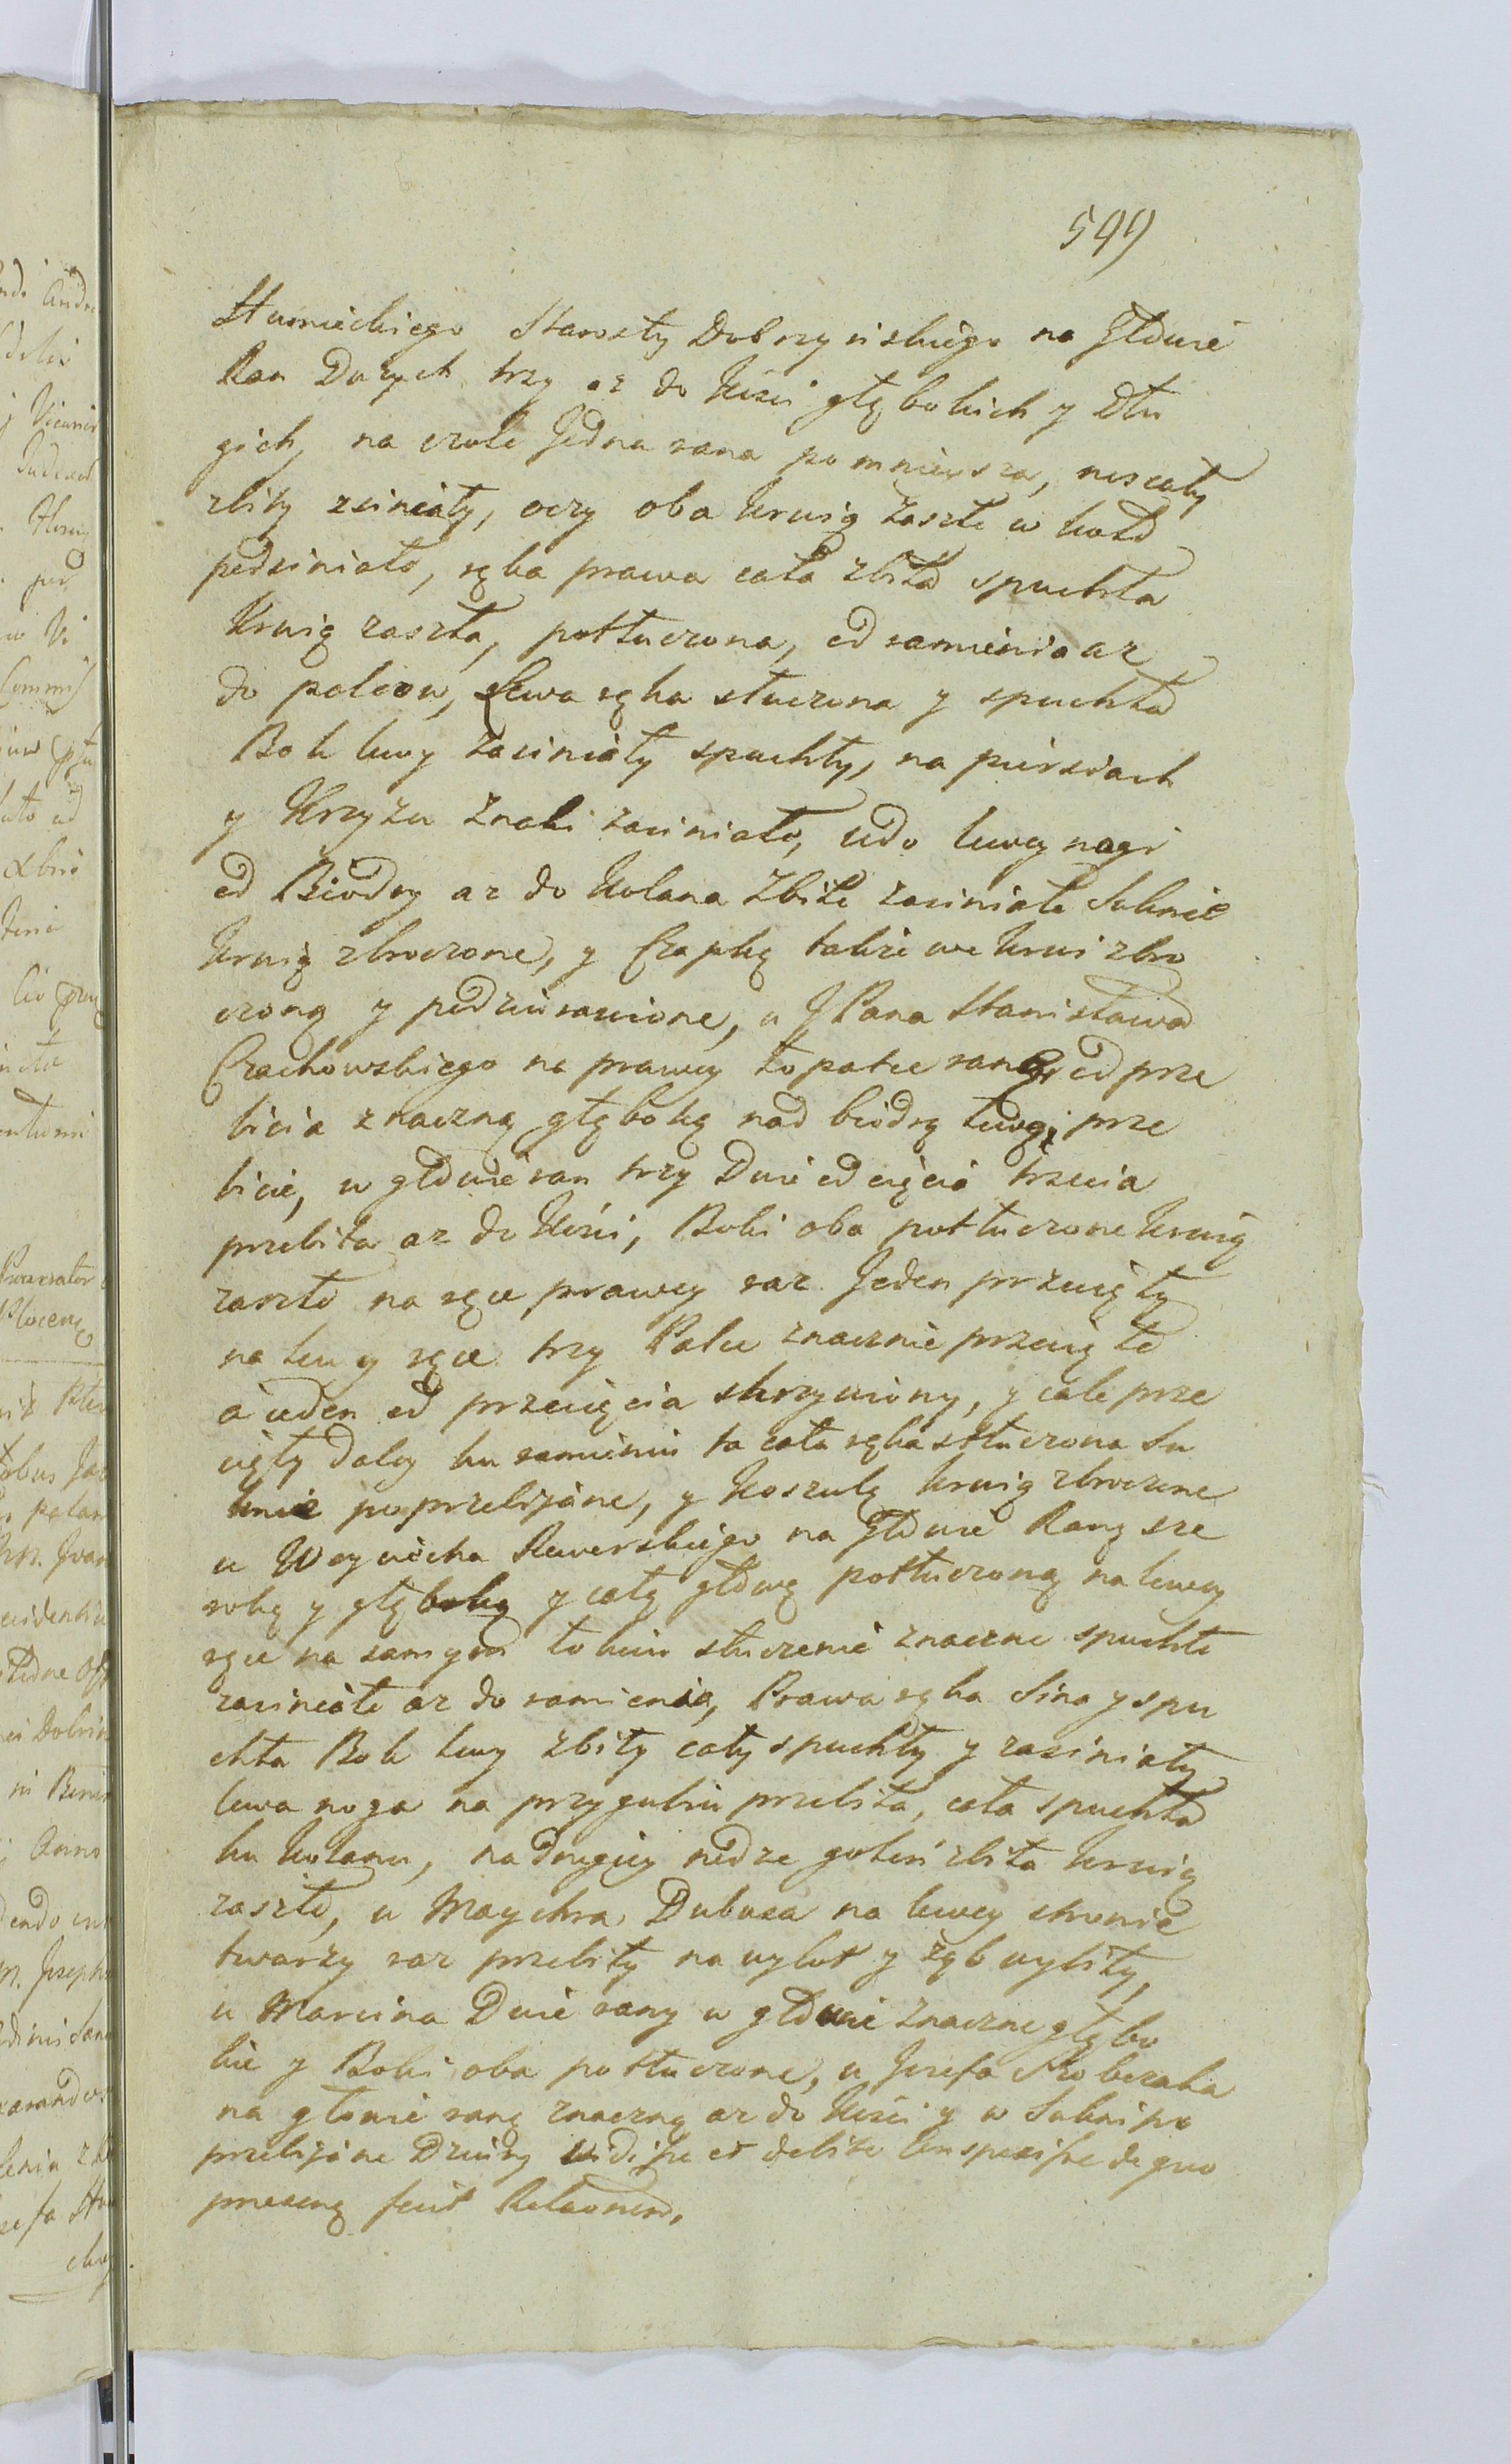 599
Humieckiego Starosty Dobrzynskiego na Głowie
Ran Duzych trzy az do Kosci głębokich y dłu
gich, na czole Jedna rana pomnieysza, nos cały
zbity zsiniały, oczy oba krwią zaszłe w koło
podsiniałe, ręka prawa cała zbita spuchła
Krwią zaszła, potłuczona, od ramienia az
do palcow, Lewa ręka stłuczona y spuchła
Bok lewy zasiniały spuchły, na piersiach
y Krzyzu znaki zasiniałe, udo lewey nogi
od Biodry az do Kolana zbite zasiniałe Suknie
krwią zbroczone, y Czapkę takze we krwi zbro
czoną y podziurawione, u JPana Stanisława
Czachowskiego na prawey łopatce ranę od prze
bicia znaczną głęboką nad biodrą lewą prze
bicie, w głowie ran trzy Dwie od cięcia trzecia
przebita az do Kosci, Boki oba potłuczone krwią
zaszłe na ręce prawey raz Jeden przecięty
na lewey ręce trzy Palce znacznie przecięte
a ieden od przecięcia skrzywiony, y cale prze
cięty daley ku ramieniu ta cała ręka stłuczona Su
knie poprzebijane, y Koszulę krwią zbroczone
u Woyciecha Rewerskiego na Głowie Ranę sze
roką y głęboką y całą głowę potłuczoną na lewey
ręce na samym łokciu stłuczenie znaczne spuchłe
zasiniałe az do ramienia, Prawa ręka sina y spu
chła Bok lewy zbity cały spuchły y zasiniały
lewa noga na przygubiu przebita, cała spuchła
ku kolanu, na drugiey nodze goleń zbita krwią
zaszłe, u Maychra Dubasa na lewey stronie
twarzy raz przebity na wylot y ząb wybity,
u Marcina Dwie rany w głowie znaczne głębo
kie y Boki oba potłuczone, u Jozefa Skobczaka
na głowie ranę znaczną az do Kosci y w Sukni po
przebijane Dziury vidisse et debite conspexisse de quo
presens fecit Relaonem,